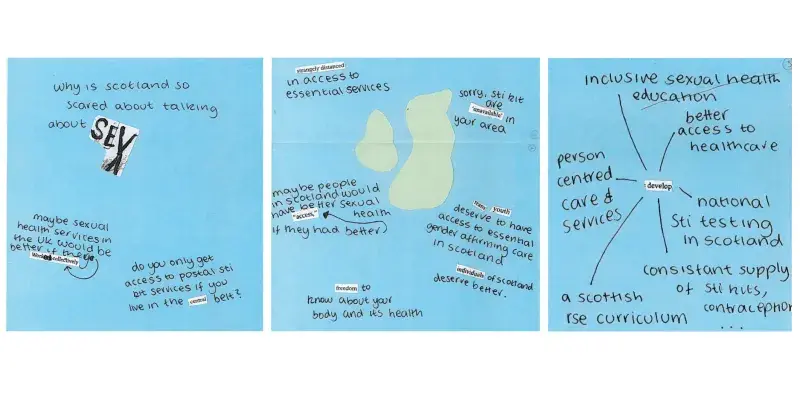 why is scotland so
scared about talking
about SEX
maybe sexual
health services in
the UK would be
better if they
worked collectively
do you only get
access to postal sti
bit services if you
live in the central belt?
strangely distanced
in access to
essential services
sorry, sti kit
are
'unavailable' in
your area
maybe people
in scotland would
have better sexual
"access." health
if they had better
trans youth
deserve to have
access to essential
gender affirming care
in scotland
individuals of scotland
deserve better.
freedom to
know about your
body and its health
3
inclusive sexual health
education
better
access to
healthcare
person
centred
care &
services
develop
national
sti testing
in scotland
a scottish
rse curriculum
consistant supply
of sti kits,
contraception
...